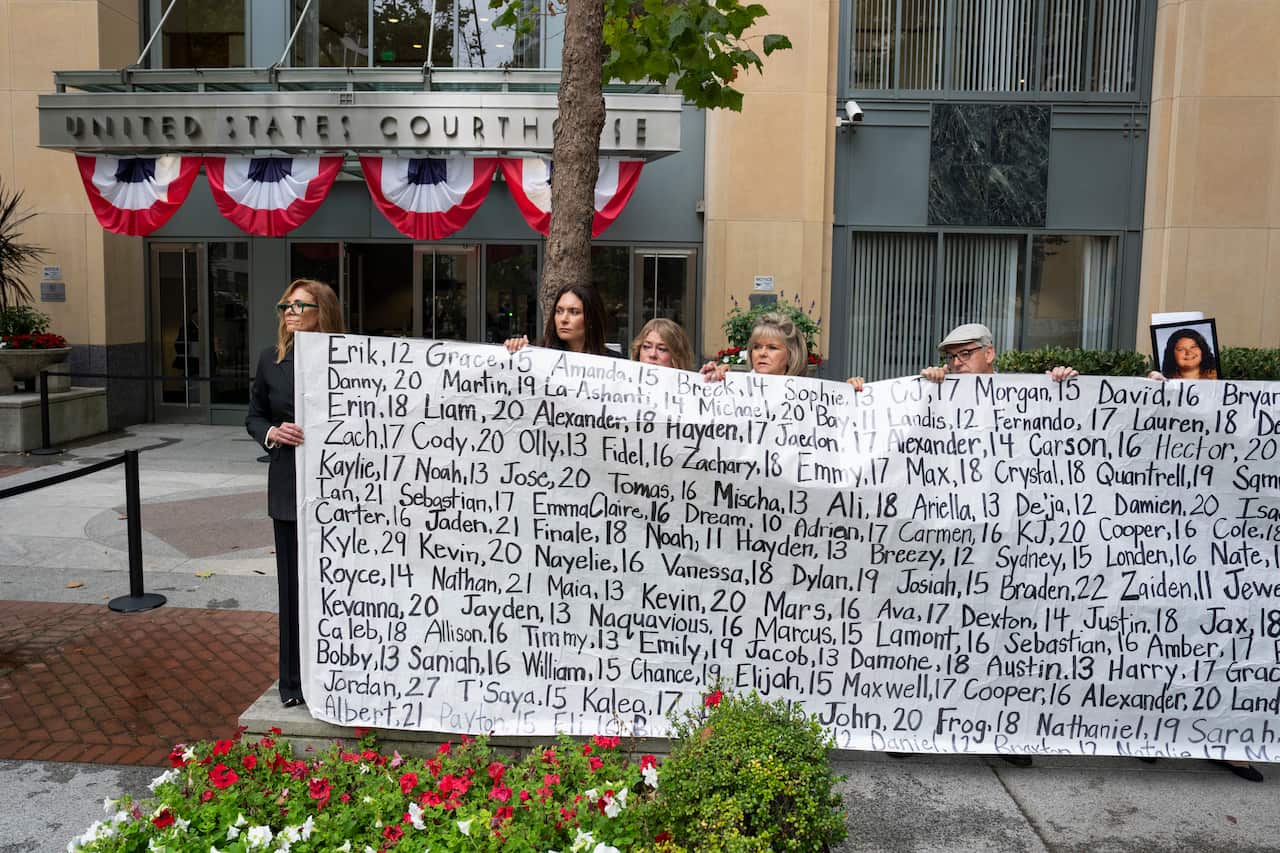 UNITED STATES COURTHOUSE
NOTICE
Erik, 12 Grace, 15 Amanda, 15 Breck, 14 Sophie, 13 CJ, 17 Morgan, 15 David, 16 Bryan
Danny, 20 Martin, 19 La-Ashanti, 14 Michael, 20 Bay, 11 Landis, 12 Fernando, 17 Lauren, 18
Erin, 18 Liam, 20 Alexander, 18 Hayden, 17 Jaedon, 17 Alexander, 14 Carson, 16 Hector, 20
Zach, 17 Cody, 20 Olly, 13 Fidel, 16 Zachary, 18 Emmy, 17 Max, 18 Crystal, 18 Quantrell, 19
Kaylie, 17 Noah, 13 Jose, 20 Tomas, 16 Mischa, 13 Ali, 18 Ariella, 13 De'ja, 12 Damien, 20
Ian, 21 Sebastian, 17 EmmaClaire, 16 Dream, 10 Adrien, 17 Carmen, 16 KJ, 20 Cooper, 16 Cole, 18
Carter, 16 Jaden, 21 Finale, 18 Noah, 11 Hayden, 13 Breezy, 12 Sydney, 15 Londen, 16 Nate,
Kyle, 29 Kevin, 20 Nayelie, 16 Vanessa, 18 Dylan, 19 Josiah, 15 Braden, 22 Zaiden, 11
Royce, 14 Nathan, 21 Maia, 13 Kevin, 20 Mars, 16 Ava, 17 Dexton, 14 Justin, 18 Jax, 18
Kevanna, 20 Jayden, 13 Naquavious, 16 Marcus, 15 Lamont, 16 Sebastian, 16 Amber, 17
Caleb, 18 Allison, 16 Timmy, 13 Emily, 19 Jacob, 13 Damone, 18 Austin, 13 Harry, 17
Bobby, 13 Saniah, 16 William, 15 Chance, 19 Elijah, 15 Maxwell, 17 Cooper, 16 Alexander, 20
Jordan, 27 T'Saya, 15 Kalea, 17 John, 20 Frog, 18 Nathaniel, 19 Sarah
Albert, 21 Payton, 15 Eli, 12 Daniel, 12 Braxton, 12 Natalie, 17